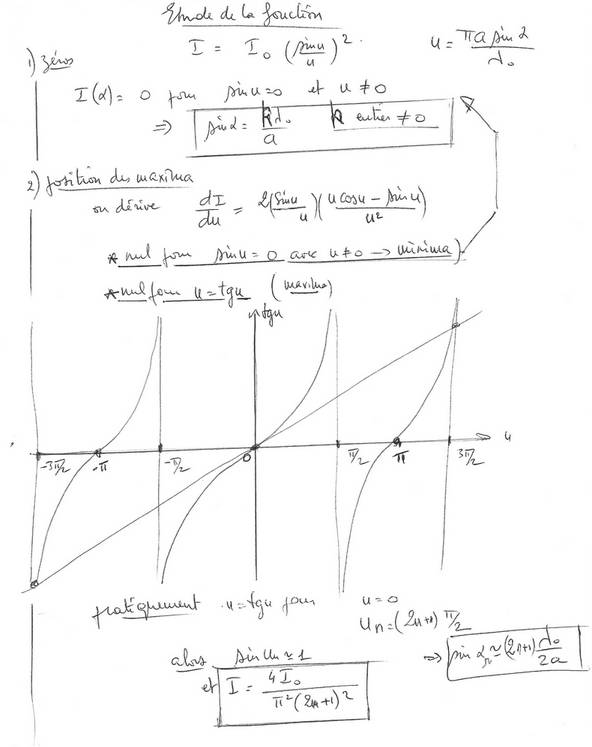 Etude de la fonction
I = I₀ (sin u / u)² . u = πa sin α / λ₀
1) zéros
I(α) = 0 pour sin u = 0 et u ≠ 0
⇒ sin α = kλ₀ / a k entier ≠ 0
2) position des maxima
on dérive dI/du = 2(sin u / u)(u cos u − sin u / u²)
* nul pour sin u = 0 avec u ≠ 0 → minima)
* nul pour u = tgu (maxima)
tgu
-3π/2 -π -π/2 0 π/2 π 3π/2 u
pratiquement u = tgu pour u = 0
uₙ = (2n+1) π/2
alors sin uₙ ≃ 1 ⇒ sin αₙ ≃ (2n+1) λ₀ / 2a
et I = 4I₀ / π²(2n+1)²